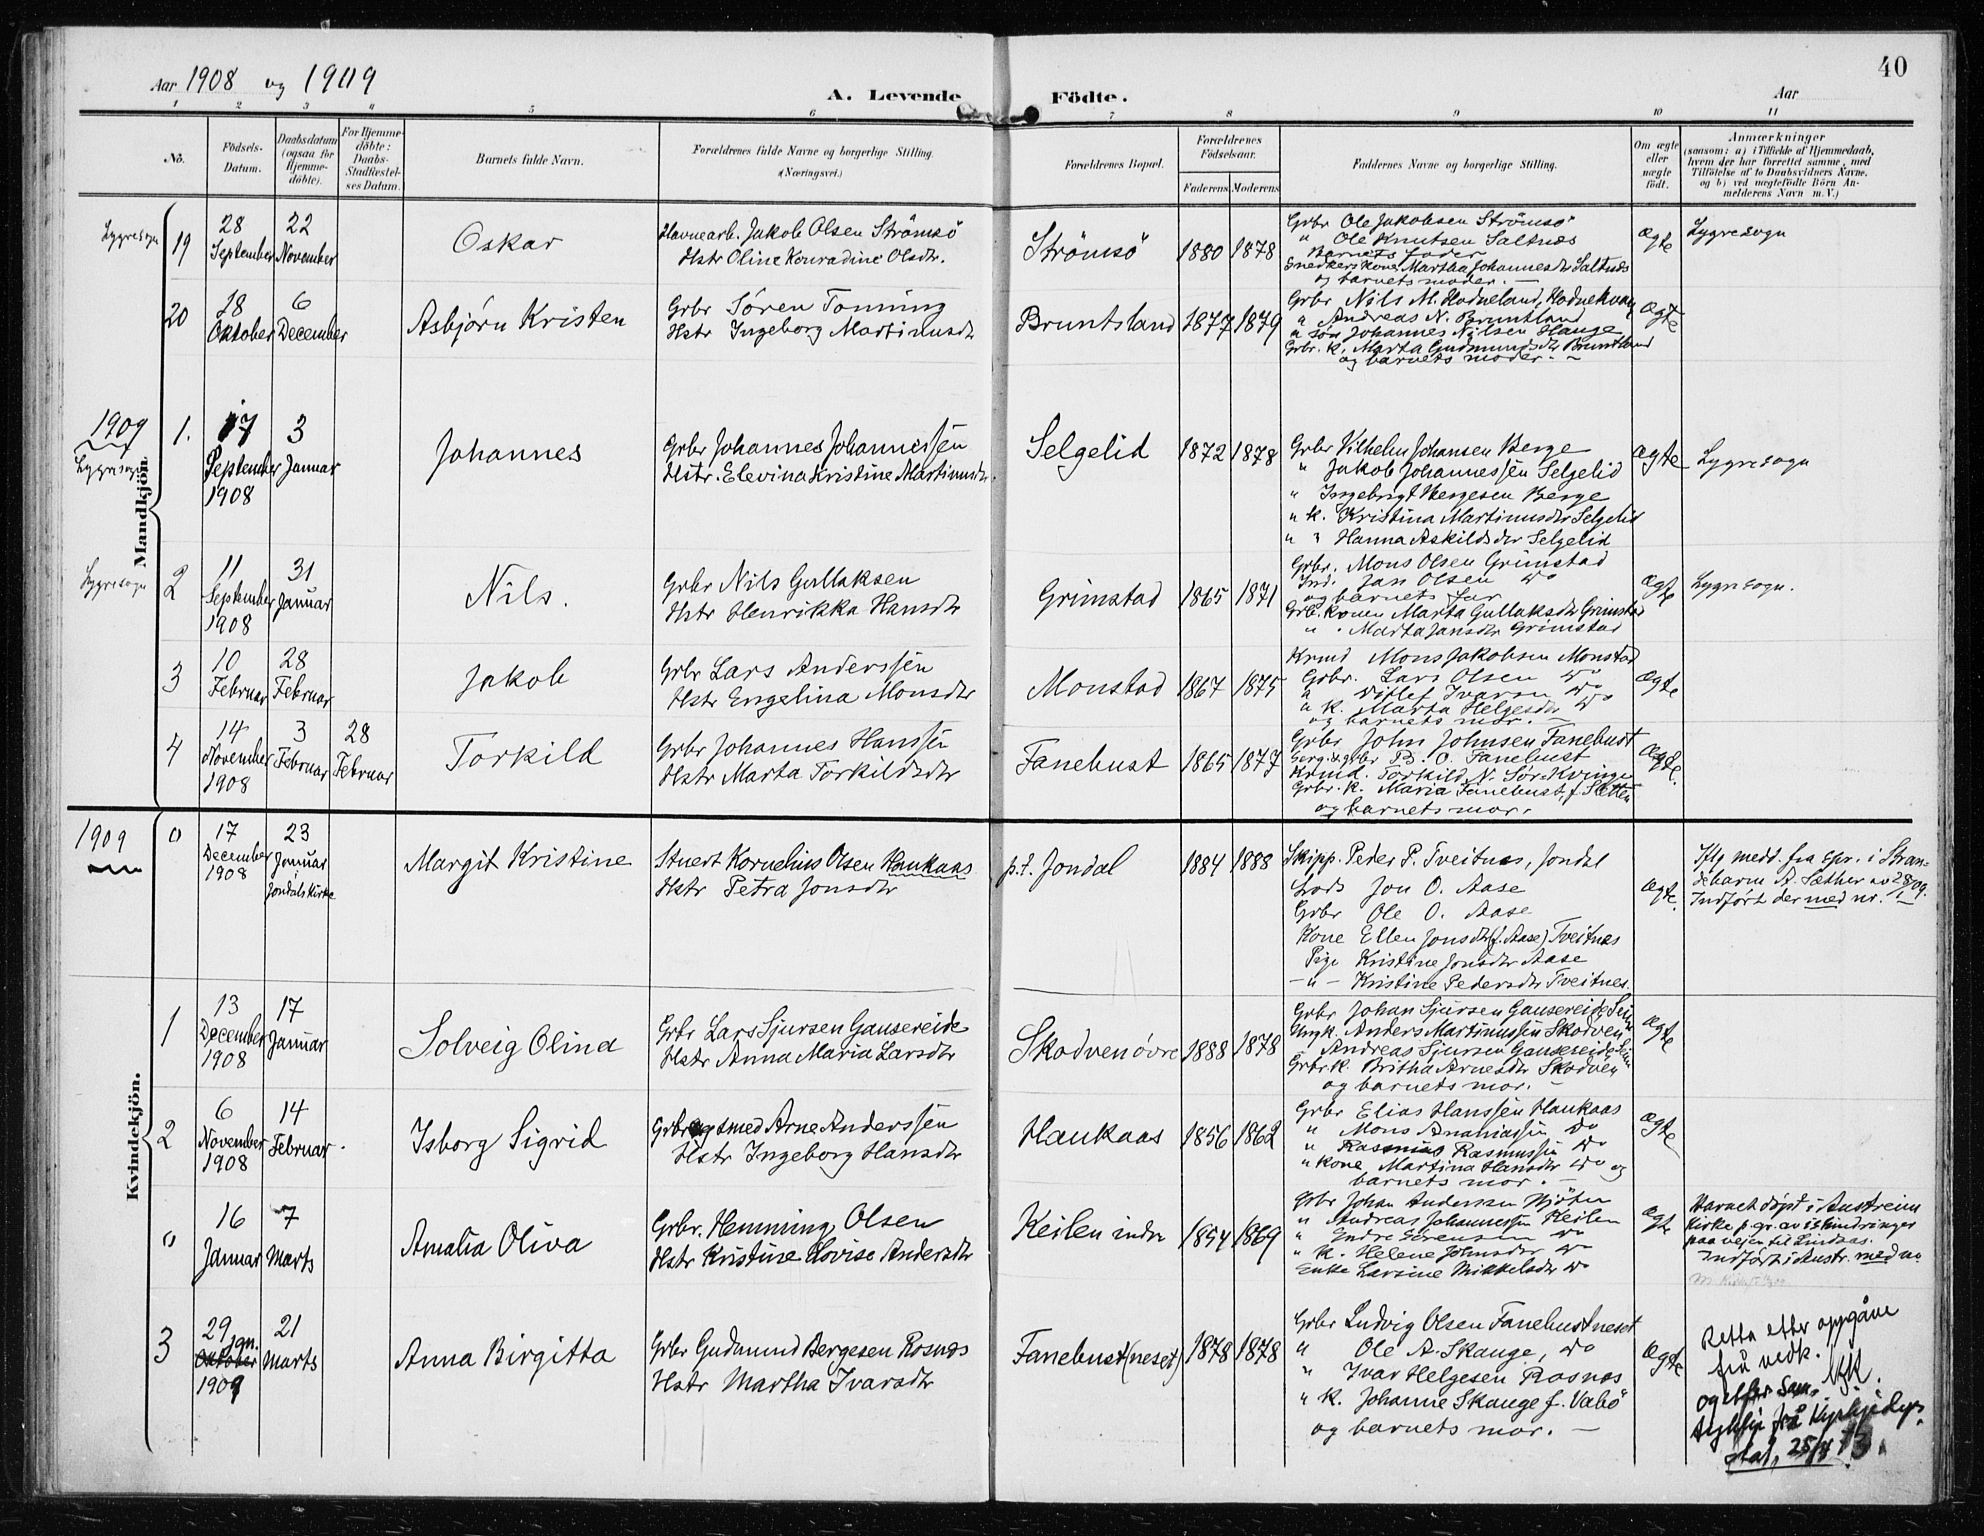 40
Aar 1908 og 1909
A. Levende Födte.
Aar
1 2 3 4 5 6 7 8 9 10 11
No.
Födsels-Datum.
Daabsdatum (ogsaa for Hjemme-döbte).
For Hjemme-döbte: Daabs-Stadfæstel-ses Datum.
Barnets fulde Navn.
Forældrenes fulde Navne og borgerlige Stilling. (Næringsvei.)
Forældrenes Bopæl.
Forældrenes Födselsaar.
Faderens Moderens
Faddernes Navne og borgerlige Stilling.
Om ægte eller uægte födt.
Anmærkninger
(saasom: a) i Tilfælde af Hjemmedaab, hvem der har forrettet samme, med Tilföielse af to Daabsvidners Navne, og b) ved uægtefödte Börn Anmelderens Navn m. V.)
Mandkjön.
Lygresogn
19
28 September
22 November
Oskar
Havnearb. Jakob Olsen Strömsö
Hstr Oline Konradine Olsdr.
Strömsö
1880 1878
Grbr Ole Jakobsen Strömsö
" Ole Knutsen Saltnæs
Barnets fader
Snedkers kone Martha Johannesdr Saltnæs
og barnets moder. —
Ægte
Lygresogn
20
18 Oktober
6 December
Asbjørn Kristen
Grbr Søren Tonning
Hstr Ingeborg Martinusdr
Bruntsland
1877 1879
Grbr Nils M. Hodneland, Hodnekvam
" Andreas N. Bruntland
" søn Johannes Nilsen Hauge
Grbr. k. Marta Gudmundsdr Bruntland
og barnets moder. —
Ægte
1909
Lygresogn
1.
17 September 1908
3 Januar
Johannes
Grbr Johannes Johannessen
Hstr. Elevina Kristine Martinusdr.
Selgelid
1872 1878
Grbr Vilhelm Johansen Berge
" Jakob Johannessen Selgelid
" Ingebrigt Bergesen Berge
" k. Kristina Martinusdr Selgelid
" " Hanna Askildsdr Selgelid
Ægte
Lygresogn
Lygresogn
2
11 September 1908
31 Januar
Nils.
Grbr Nils Gullaksen
Hstr Henrikka Hansdr
Grimstad
1865 1871
Grbr. Mons Olsen Grimstad
Ind. Jan Olsen do
og barnets far
Grb. konen Marta Gullaksdr Grimstad
" " Marta Jansdr Grimstad
Ægte
Lygresogn.
3
10 Februar
28 Februar
Jakob
Grbr Lars Anderssen
Hstr Engelina Monsdr
Monstad
1867 1875
Krmd Mons Jakobsen Monstad
Grbr. Lars Olsen do
" Ditlef Ivarsen do
" k. Marta Helgesdr do
og barnets mor. —
Ægte
4
14 November 1908
3 Februar
28 Februar
Torkild
Grbr Johannes Hanssen
Hstr Marta Torkildsdr
Fanebust
1865 1877
Grbr John Johnsen Fanebust
B. O. Fanebust
Krmd. Torkild N. Sør-Kvinge
Grbr. k. Maria Fanebust, f. Sletten
og barnets mor.
Ægte.
Kvindekjön.
1909
0
17 December 1908
23 Januar i Jondals kirke
Margit Kristine
Stuert Kornelius Olsen Haukaas
Hstr Petra Jonsdr
p.t. Jondal
1884 1888
Skipp. Peder P. Tveitnes, Jondal
Lods Jon O. Aase
Grbr Ole O. Aase
Kone Ellen Jonsdr (f. Aase) Tveitnes
Pige Kristine Jonsdr Aase
— " — Kristine Pedersdr Tveitnes.
Ægte.
Iflg medd. fra spr. i Strandebarm A. Sæther av 28/1 09.
Indført der med nr.
1
13 December 1908
17 Januar
Solveig Olina
Grbr Lars Sjursen Gausereide
Hstr Anna Maria Larsdr
Skodven övre
1888 1878
Grbr Johan Sjursen Gausereide Seim
Ungk. Anders Martinussen Skodven
Andreas Sjursen Gausereide Seim
Grbr k. Britha Arnesdr Skodven
og barnets mor. —
Ægte
2
6 November 1908
14 Februar.
Isborg Sigrid
Grbr og smed Arne Anderssen
Hstr Ingeborg Hansdr
Haukaas
1856 1862
Grbr Elias Hanssen Haukaas
" Mons Ananiassen do
" Rasmus Rasmussen do
" kone Martina Hansdr do og
barnets mor. —
Ægte
0
16 Januar
7 Marts
Amalia Oliva
Grbr. Hemming Olsen
Hstr Kristine Lovise Andersdr
Keilen indre
1854 1869
Grbr Johan Andersen Mjötn
" Andreas Johannessen Keilen
" Endre Sörensen do
" k. Helene Johnsdr do
Enke Larsine Mikkelsdr do
Ægte
Barnet döpt i Austreim
kirke p. gr. av ishindringer
paa vejen til Lindaas.
Indført i Austr. med no
3
29 Jan. Oktober 1909
21 Marts
Anna Birgitta
Grbr Gudmund Bergesen Rosnæs
Hstr Martha Ivarsdr
Fanebust (neset)
1878 1878
Grbr Ludvig Olsen Fanebustneset
" Ole A. Skauge, do
" Ivar Helgesen Rosnæs
" k. Johanne Skauge f. Vabö
og barnets mor. —
Ægte
Retta etter oppgåve
frå vedk.
og etter
frå Kyrkjedep.
25/4 73.